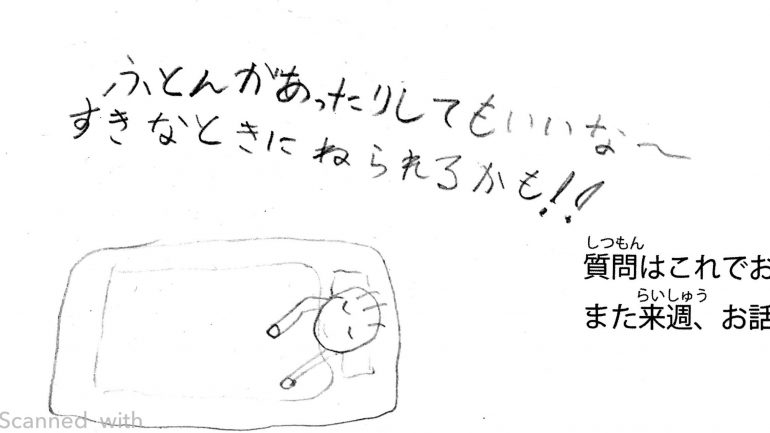 ふとんがあったりしてもいいな〜
すきなときにねられるかも!!
しつもん
質問はこれでお
らいしゅう
また来週、お話
Scanned with